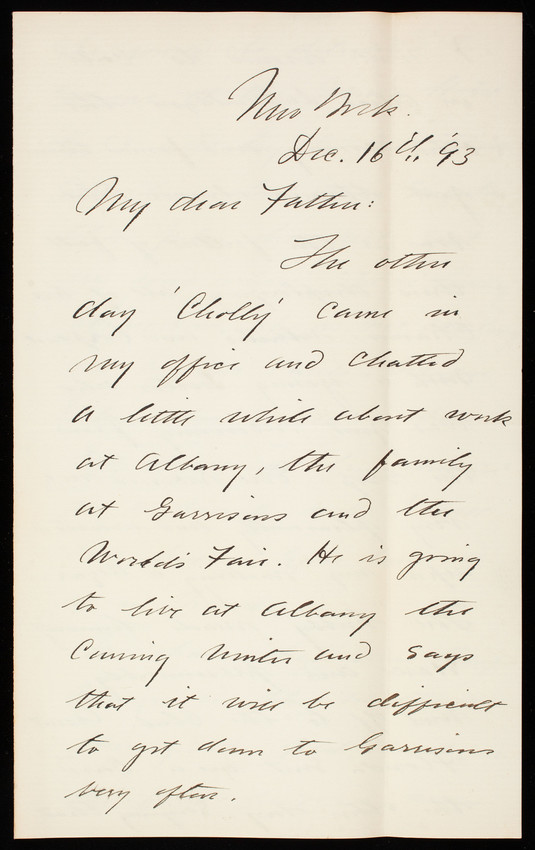 New York.
Dec. 16th, '93
My dear Father:
The other
day 'Cholly' came in
my office and chatted
a little while about work
at Albany, the family
at Garrisons and the
World's Fair. He is going
to live at Albany the
Coming Winter and says
that it will be difficult
to get down to Garrisons
very often.